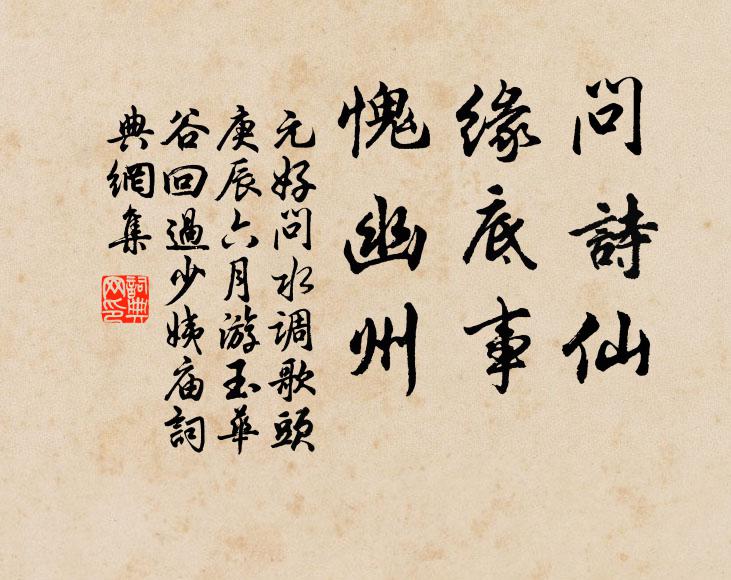 問詩仙
緣底事
愧幽州
元好問水调歌頭
庚辰六月游玉華
谷回過少姨庙詞
典網集
詞典网印